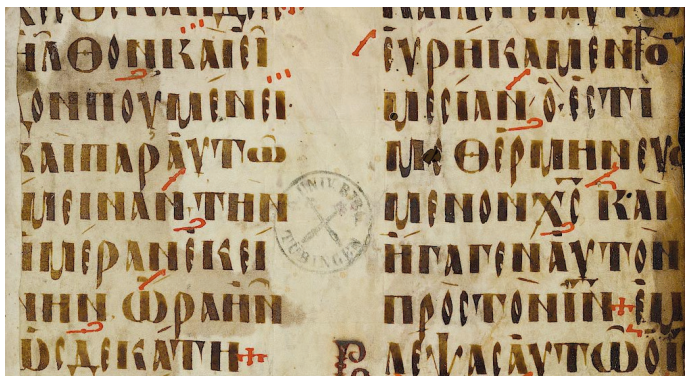 ΗΛΘΟΝΚΑΙΕΙ
ΔΟΝΠΟΥΜΕΝΕΙ·
ΚΑΙΠΑΡΑΥΤΩ
ΜΕΙΝΑΝΤΗΝ
ΗΜΕΡΑΝΕΚΕΙ
ΝΗΝΩΡΑΗΝ
ΩϹΔΕΚΑΤΗ+
ΚΑΙΛΕΓΕΙΑΥΤΩ
ΕΥΡΗΚΑΜΕΝΤΟ
ΜΕϹΙΑΝ·Ο·ΕϹΤΙ
ΜΕΘΕΡΜΗΝΕΥΟ
ΜΕΝΟΝΧ̅Ϲ̅ ΚΑΙ
ΗΓΑΓΕΝΑΥΤΟΝ
ΠΡΟϹΤΟΝΙ̅Ν̅+ΕΜ
ΒΛΕΨΑϹΑΥΤΩΟΙ
TÜBINGEN